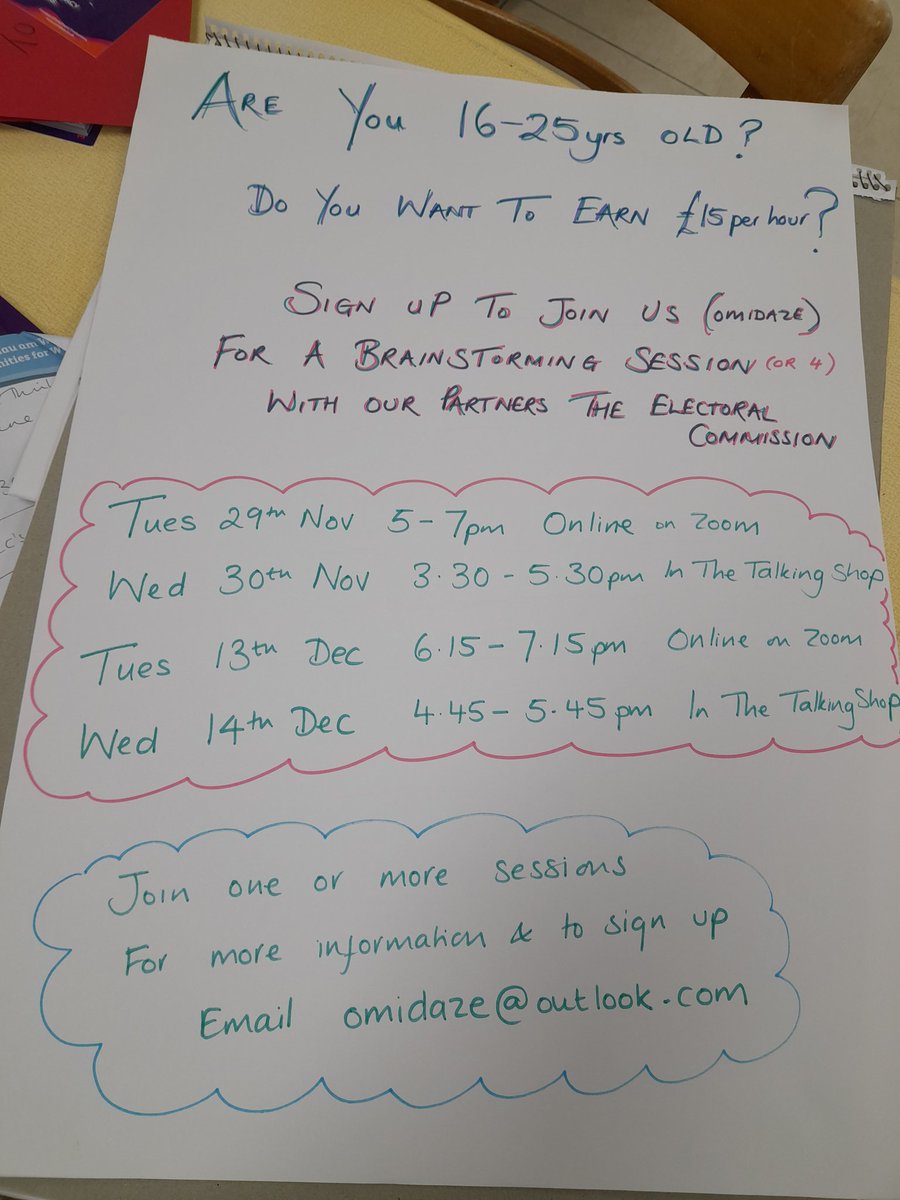 ARE YOU 16-25yrs OLD?
DO YOU WANT TO EARN £15 per hour?
SIGN UP TO JOIN US (OMIDAZE)
FOR A BRAINSTORMING SESSION (OR 4)
WITH OUR PARTNERS THE ELECTORAL
COMMISSION
Tues 29th Nov 5-7pm Online on Zoom
Wed 30th Nov 3.30-5.30pm In The Talking Shop
Tues 13th Dec 6.15-7.15pm Online on Zoom
Wed 14th Dec 4.45-5.45pm In The Talking Shop
Join one or more sessions
For more information & to sign up
Email omidaze@outlook.com